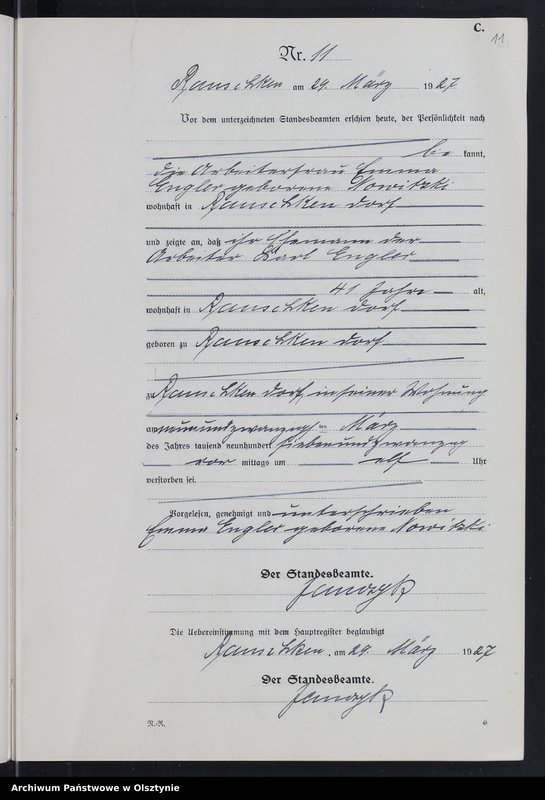 C.
11.
Nr. 11
Rauschken am 29. März 1927
Vor dem unterzeichneten Standesbeamten erschien heute, der Persönlichkeit nach
be kannt,
die Arbeiterfrau Emma
Engler geborene Nowitzki
wohnhaft in Rauschken Dorf
und zeigte an, daß ihr Ehemann der
Arbeiter Karl Engler
41 Jahre alt,
wohnhaft in Rauschken Dorf
geboren zu Rauschken Dorf
zu Rauschken Dorf, in seiner Wohnung
am neunundzwanzigsten März
des Jahres tausend neunhundert siebenundzwanzig
vor mittags um elf Uhr
verstorben sei.
Vorgelesen, genehmigt und unterschrieben
Emma Engler geborene Nowitzki
Der Standesbeamte.
Die Uebereinstimmung mit dem Hauptregister beglaubigt
Rauschken, am 29. März 1927
Der Standesbeamte.
N.-R.
6
Archiwum Państwowe w Olsztynie